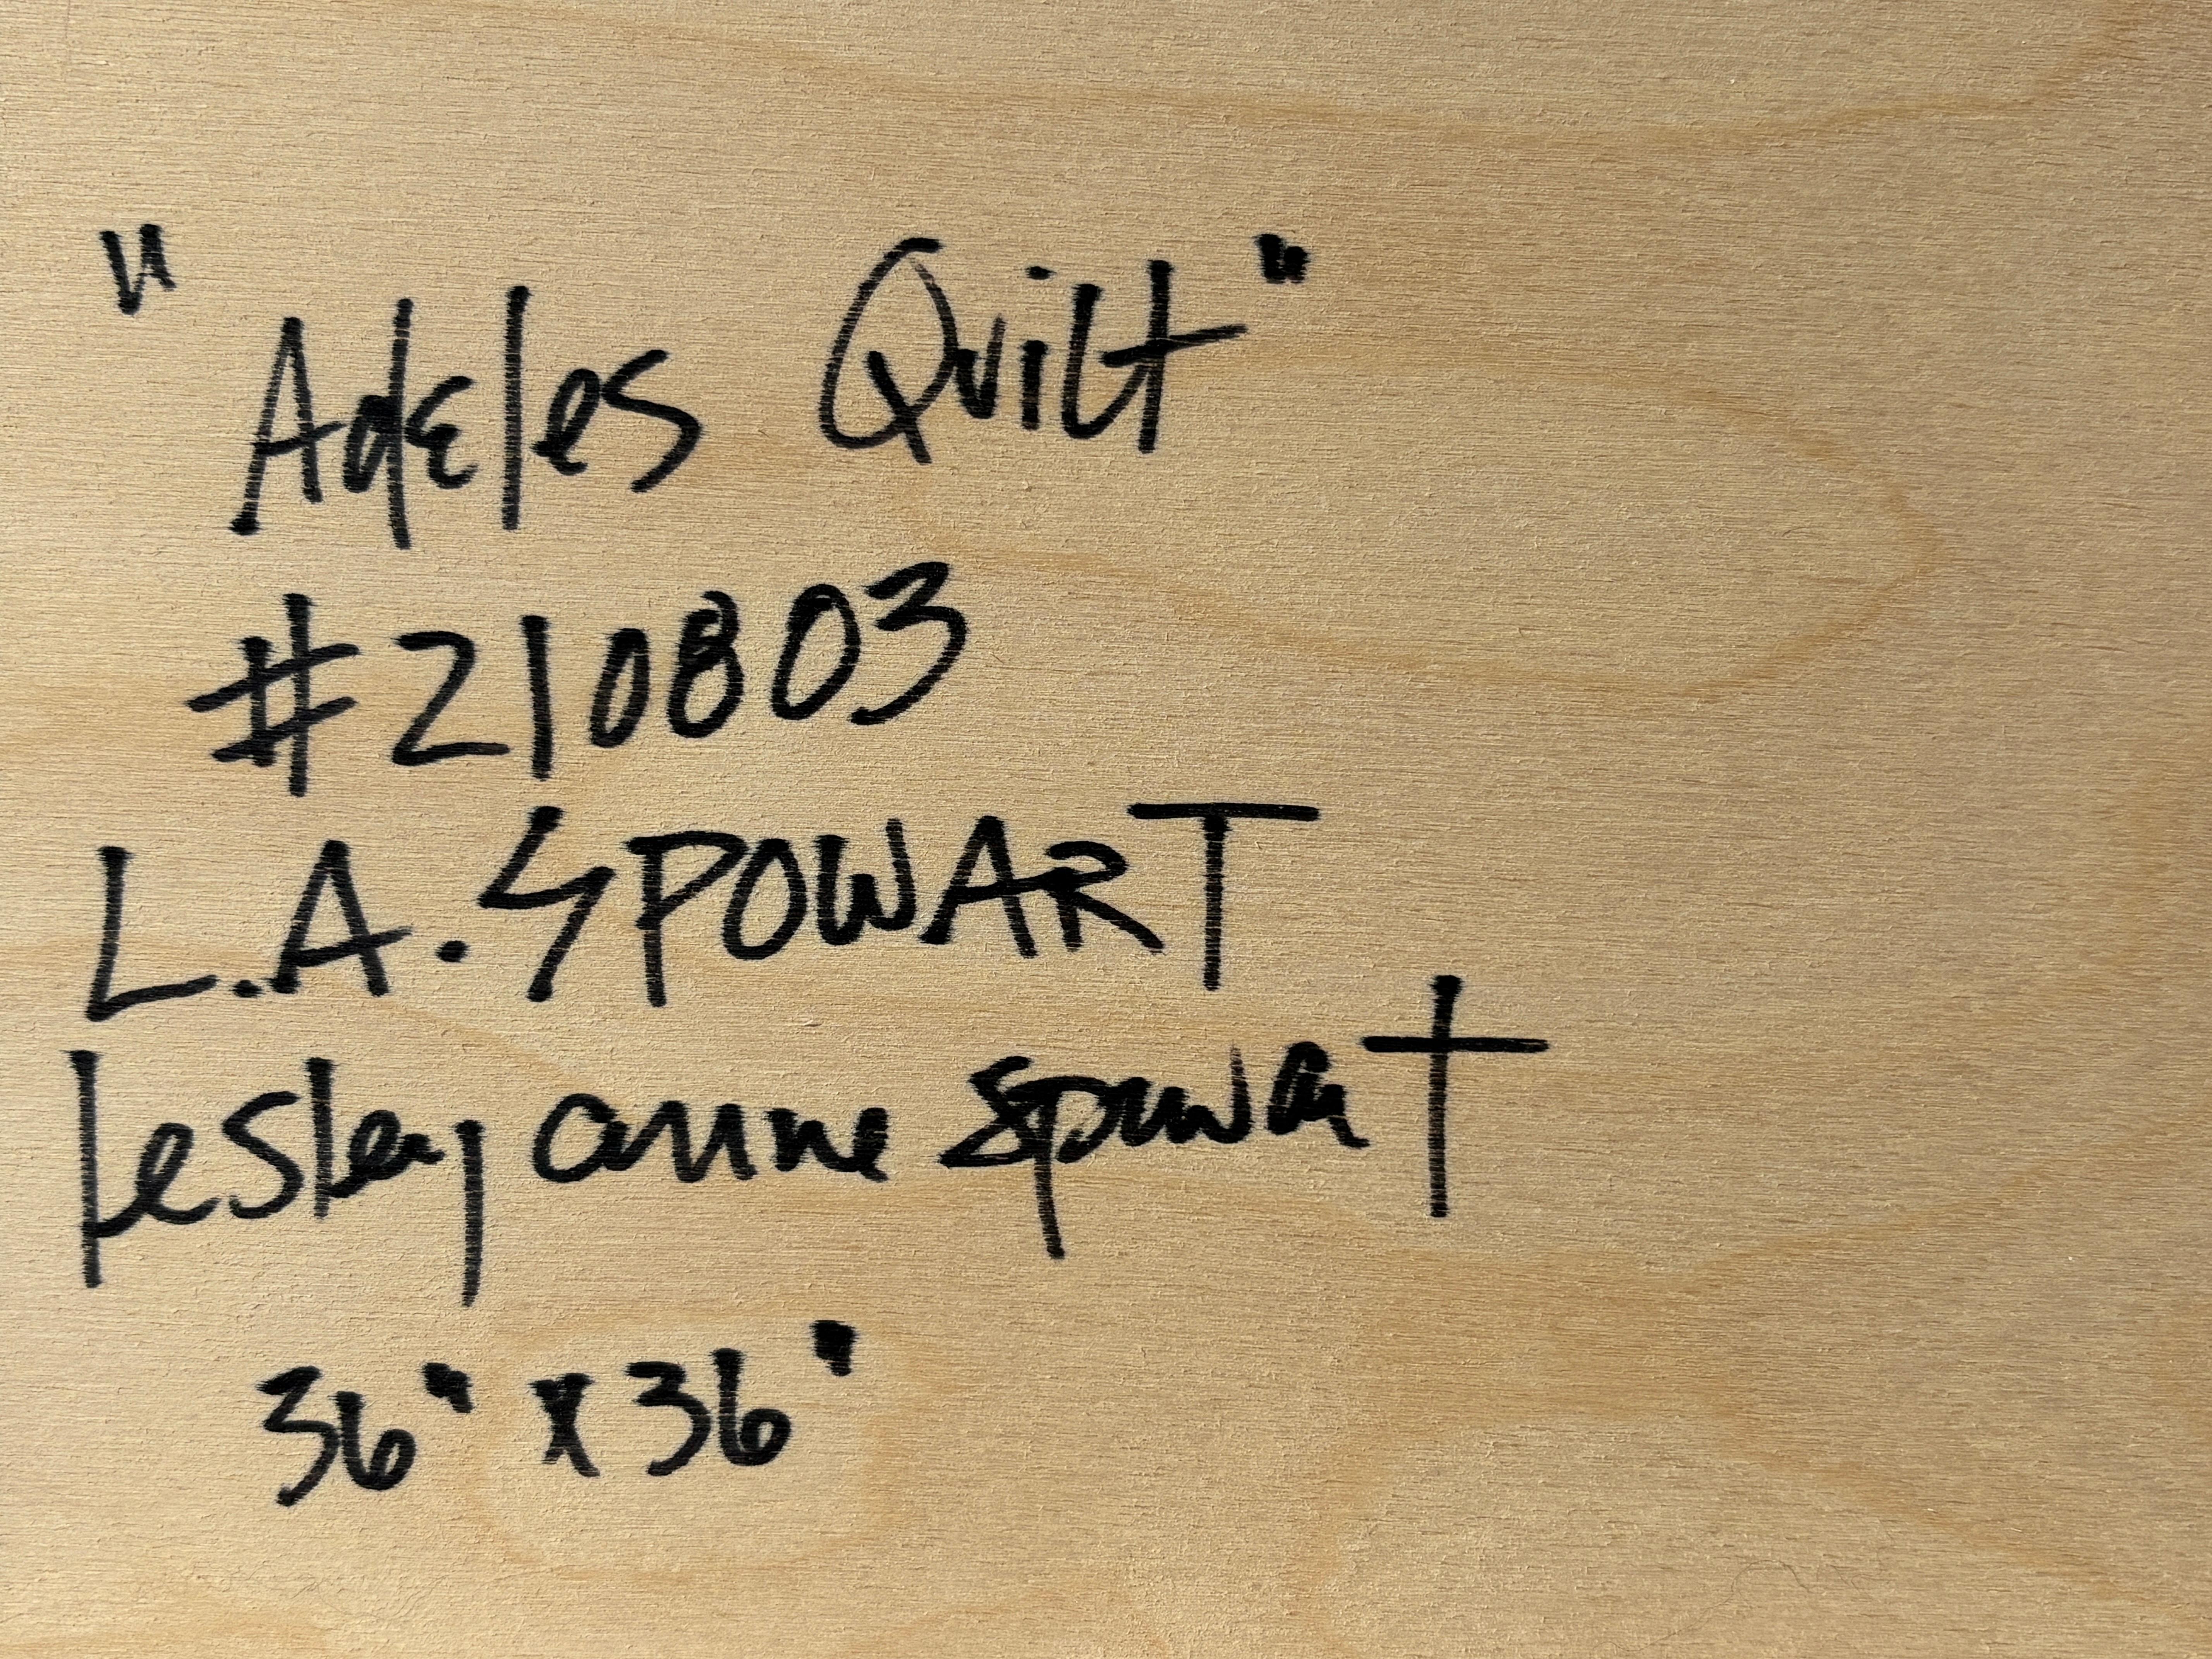 "Adeles Quilt"
#210803
L.A. SPOWART
Lesley anne spowart
36" x 36"